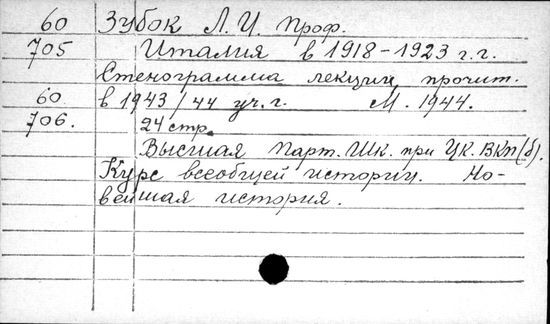 60 Зубок Л. И. Проф.
705 Италия в 1918-1923 г.г.
Стенограмма лекции, прочит.
60 в 1943/44 уч. г. М. 1944.
706. 24 стр.
Высшая Парт. Шк. при Цк. ВКП(б).
Курс всеобщей истории. Но-
вейшая история.